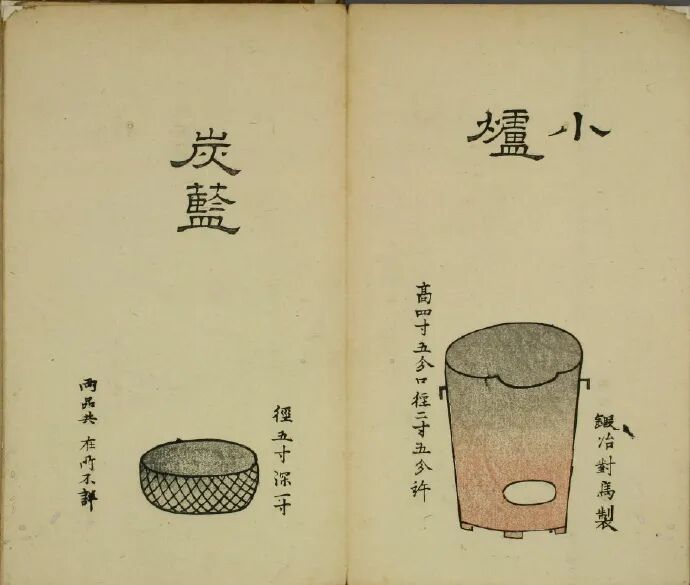 小爐
高四寸五分口徑二寸五分許
鍛冶對馬製
炭藍
徑五寸深一寸
両品共在所不詳